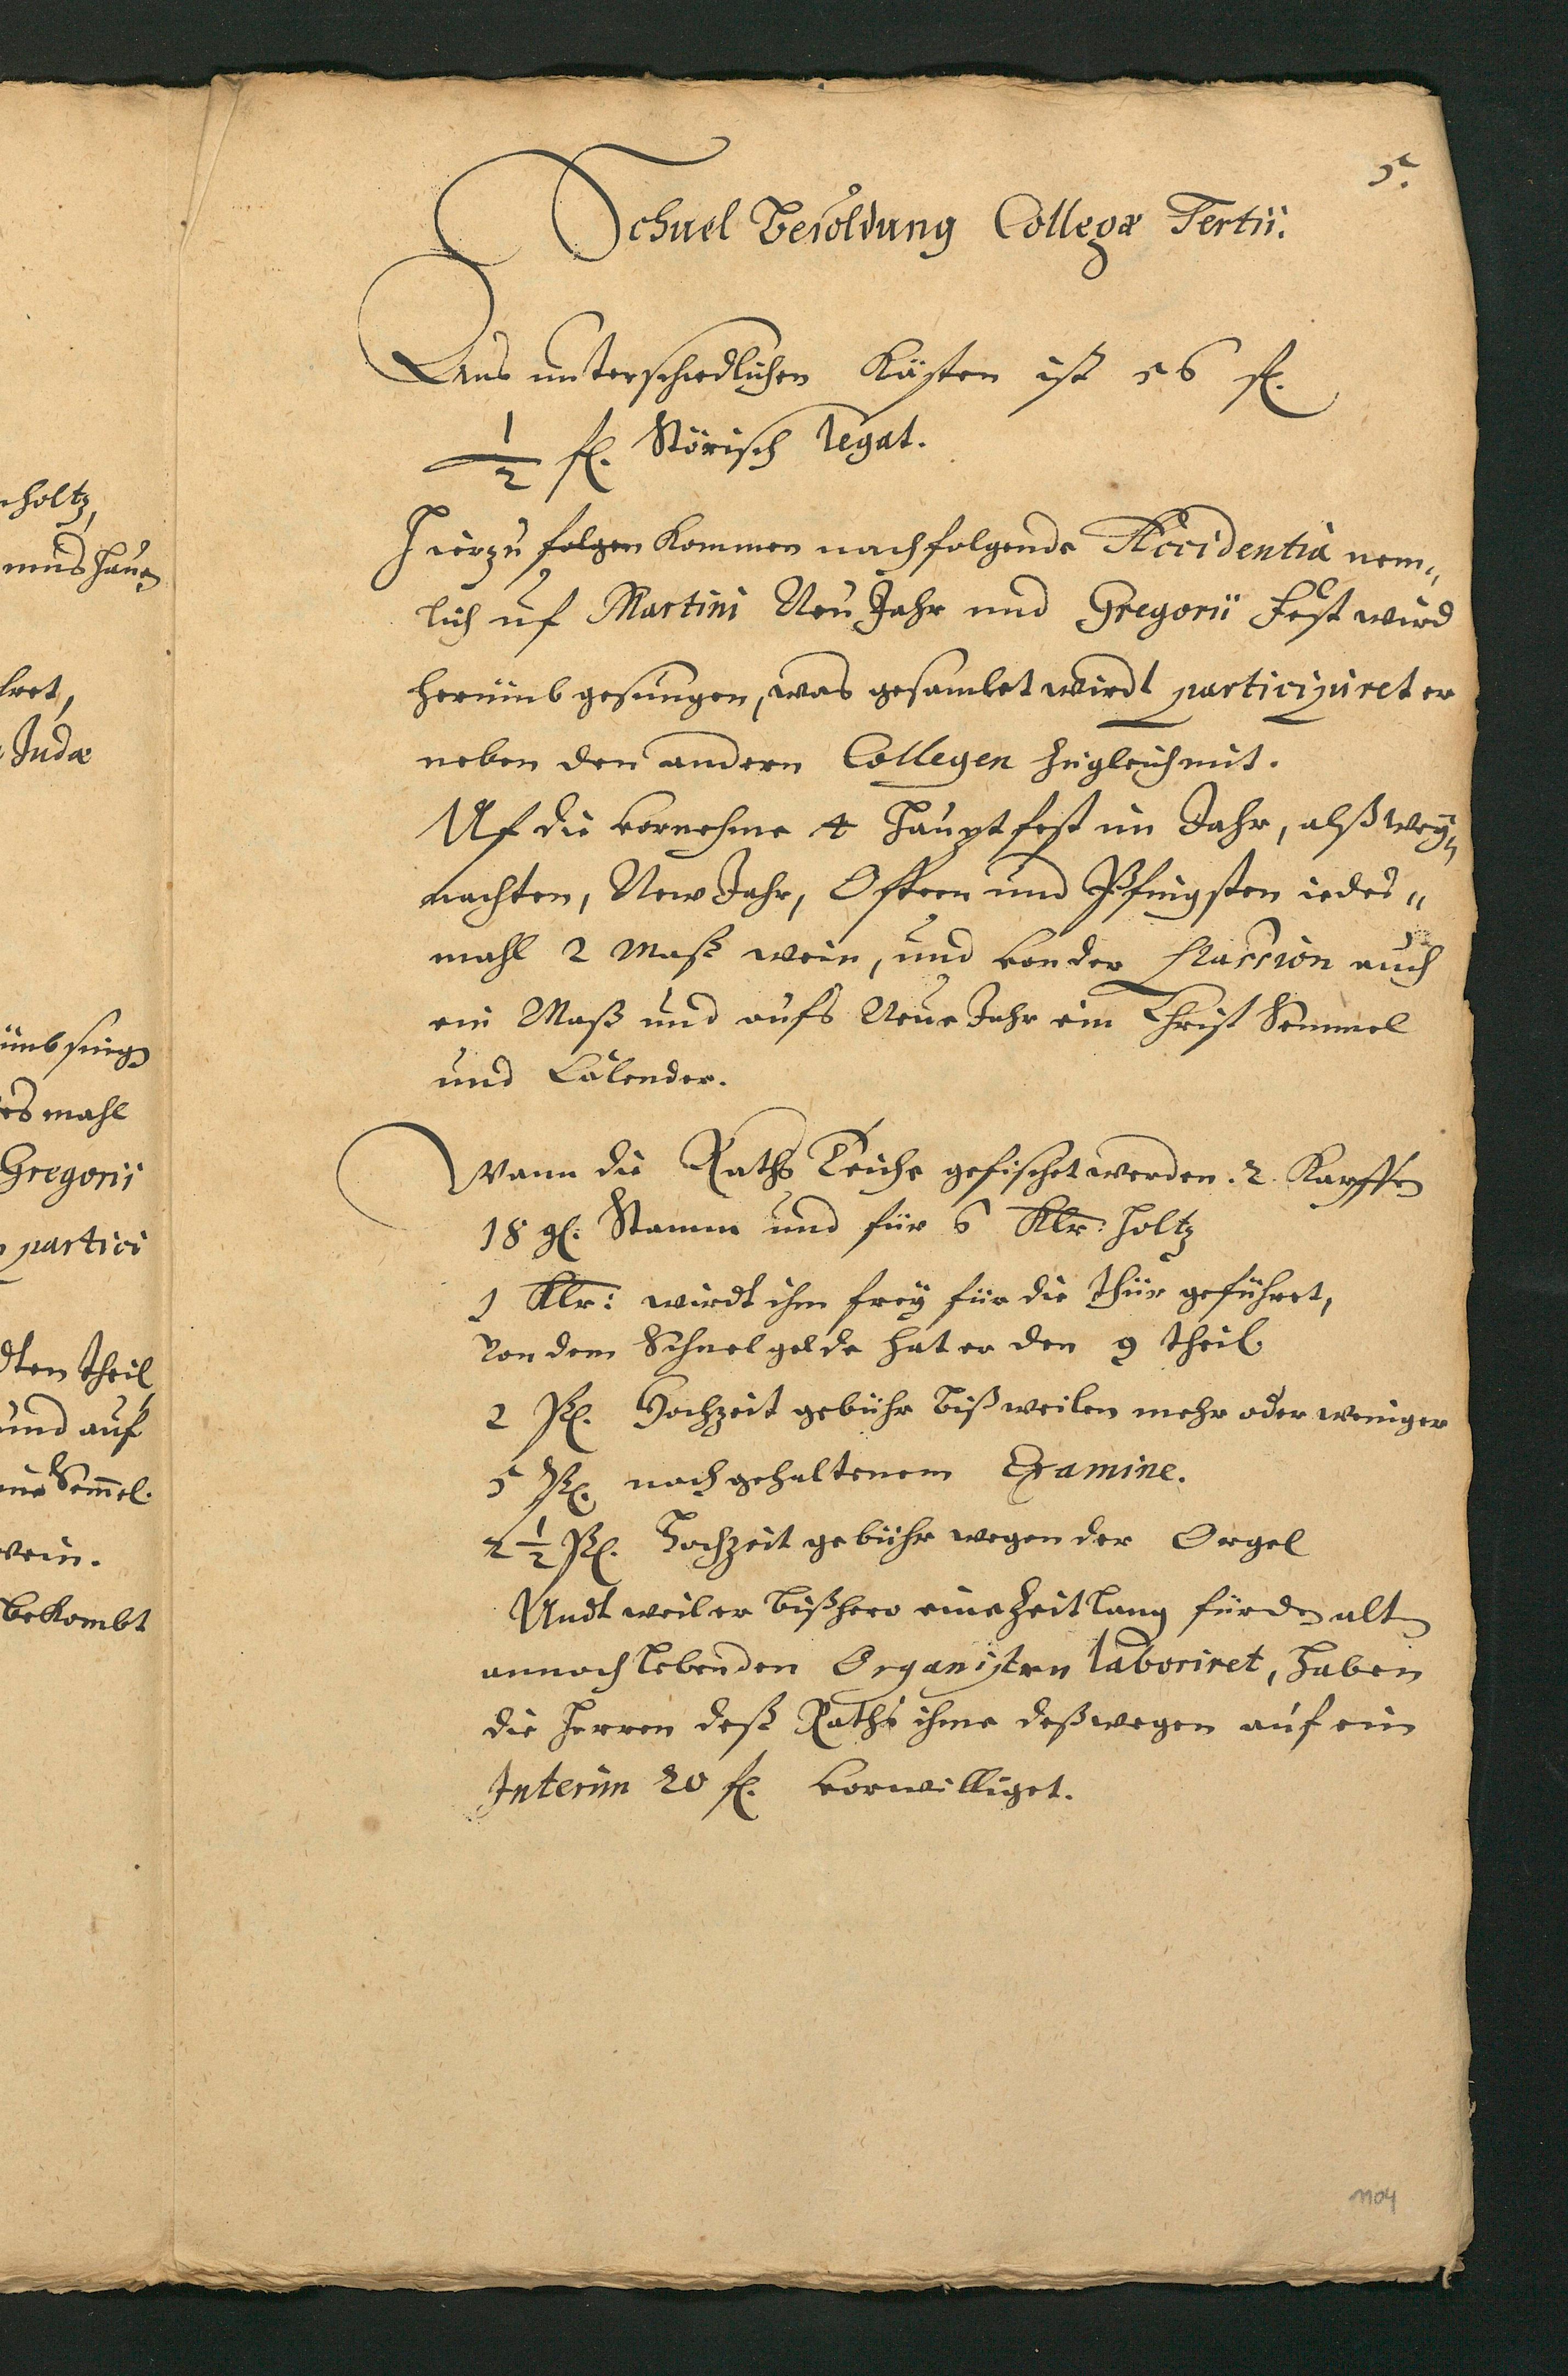 holtz,
unndt hauen
ret,
Judæ
ümb singen
es mahl
Gregorii
partici
dten theil
und auf
eine Semmel.
wein.
bekombt
5.
Schuel Besoldung Collegæ Tertii.
Aus unterschiedlichen Kästen ist 56 fl.
1/2 fl. Störisch legat.
Hierzu folgen kommen nachfolgende Accidentia nem„
lich uf Martini Neu Jahr und Gregorii Fest wird
herümb gesungen, was gesamlet wirdt participiret er
neben den andern Collegen zugleich mit.
Uf die vornehme 4 Hauptfest im Jahr, alß Wey„
nachten, New Jahr, Ostern und Pfingsten iedes„
mahl 2 Maß wein, und von der Passion auch
ein Maß und aufs Neue Jahr ein Christ Semmel
und Calender.
Wann die Raths Teiche gefischet werden. 2. Karpffen
18 gl. Stamm und für 6 Klr: Holtz
1 Klr: wirdt ihm frey für die Thür geführet,
Von dem Schuelgelde hat er den 9 theil
2 Rl. Hochzeit gebühr bißweilen mehr oder weniger
5 Rl. nach gehaltenem Examine.
2 1/2 Rl. Hochzeit gebühr wegen der Orgel
Undt weil er bißhero eine Zeitlang für den alten
annoch lebenden Organisten laboriret, haben
die Herren deß Raths ihme deßwegen auf ein
Interim 20 fl. verwilliget.